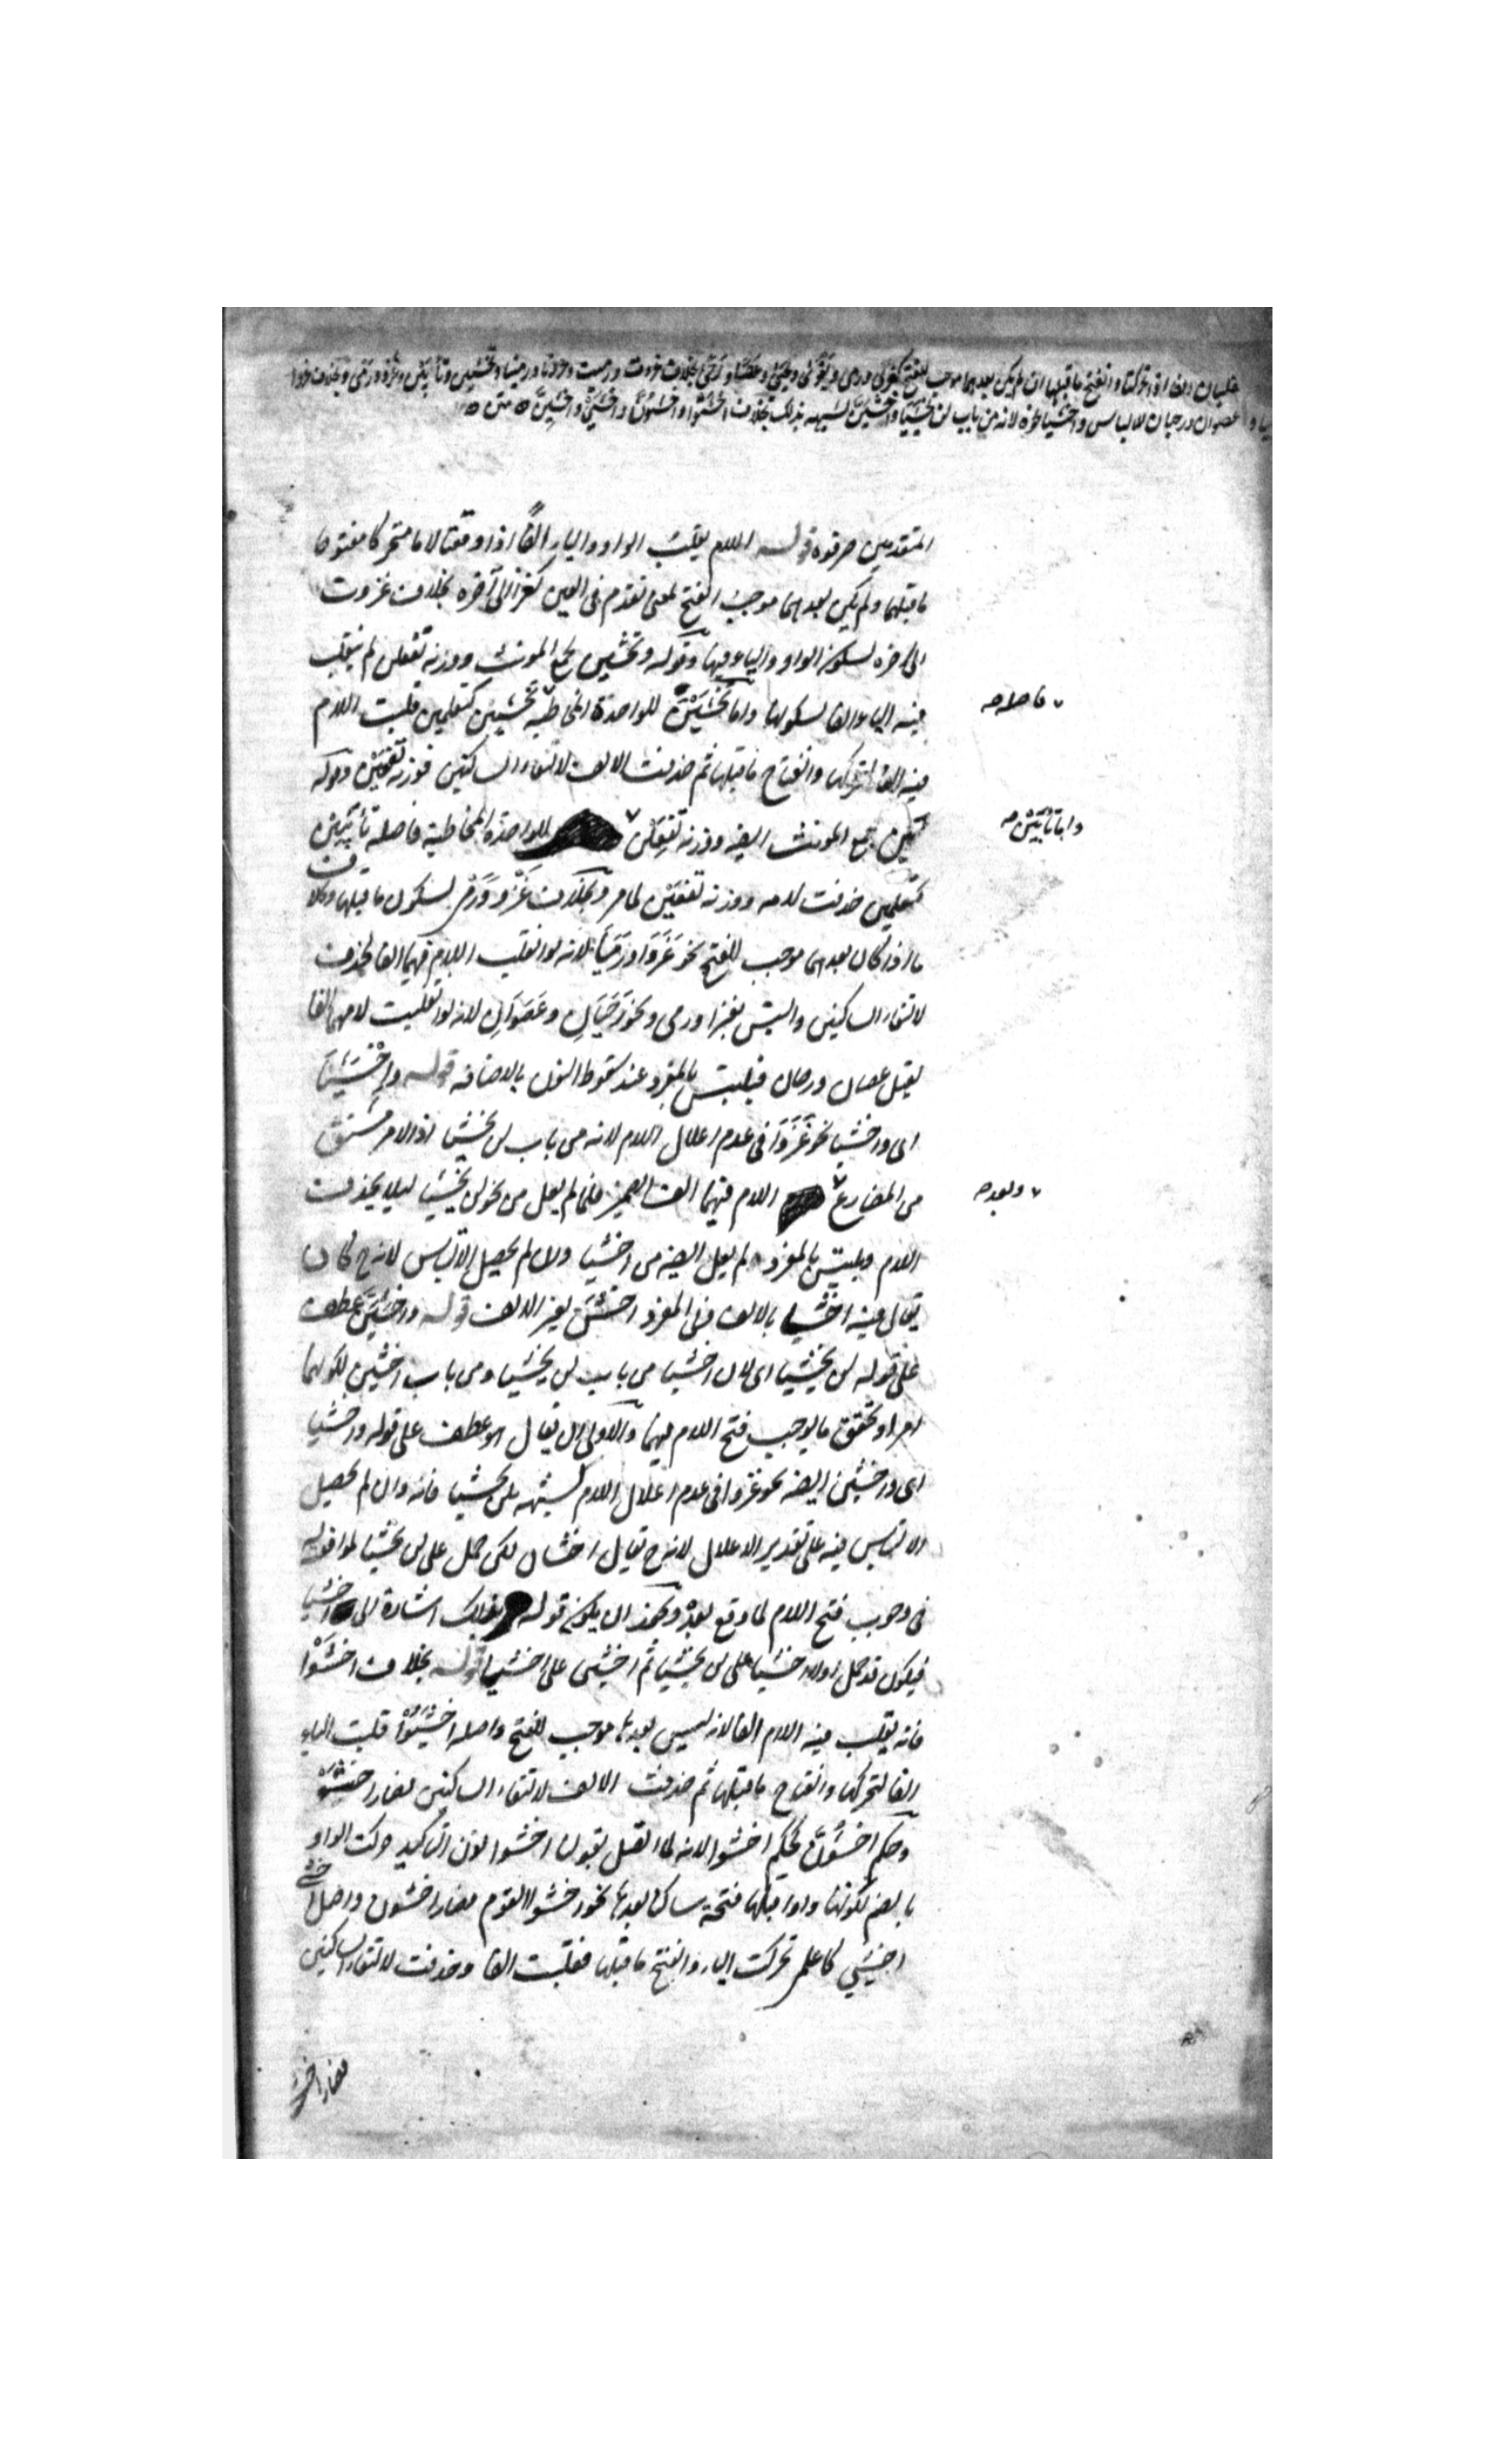 تقلبان الفا اذا تحركتا وانفتح ما قبلهما ان لم يكن بعدهما موجب للفتح كغزى ورمى ويقوى ويحيى وعصا ورحى بخلاف غزوت ورميت وغزونا ورمينا وتخشين وتأبين وغزو ورمى وبخلاف غزوا
ورميا وعصوان ورحيان للالباس واخشيا نحوه لانه من باب لن يخشيا واخشين لشبهه بذلك بخلاف اخشوا واخشون واخشى واخشين متن
المتقدمين صرفوه قوله اللام يقلب الواو والياء الفا اذا وقعتا لاما متحركا مفتوحا
ما قبلهما ولم يكن بعدهما موجب الفتح لمعنى تقدم فى العين كغزا الى آخره بخلاف غزوت
الى آخره لسكون الواو والياء فيها وقوله وتخشين لجمع المونث ووزنه تفعلن لم ينقلب
فيه الياء الفا لسكونها واما تخشين للواحدة المخاطبة تخشيين كتعلمين قلبت اللام
فاصله صح
فيه الفا لتحركها وانفتاح ما قبلها ثم حذفت الالف لالتقاء الساكنين فوزنه تفعين وقوله
تأبين جمع المونث ايضا ووزنه تفعلن للواحدة المخاطبة فاصله تأبيين
واما تأبين صح
كتعلمين حذفت لامه ووزنه تفعين لما مر وبخلاف غزو ورمى لسكون ما قبلهما وبخلاف
ما اذا كان بعدهما موجب للفتح نحو غزوا ورميا لانه لو انقلب اللام فيهما الفا لحذف
لالتقاء الساكنين والتبس بغزا ورمى ونحو رحيان وعصوان لانه لو انقلبت لامهما الفا
لقيل عصان ورحان فيلتبس بالمفرد عند سقوط النون بالاضافه قوله واخشيا
اى واخشيا نحو غزوا فى عدم اعلال اللام لانه من باب لن يخشيا اذ الامر مشتق
من المضارع اللام فيهما الف الضمير فلما لم يعل من نحو لن يخشيا ليلا يحذف
وبعد صح
اللام ويلتبس بالمفرد لم يعل ايضا من اخشيا وان لم يحصل الالتباس لانه ح كان
يقال فيه اخشا بالالف وفى المفرد اخش بغير الالف قوله واخشين عطف
على قوله لن يخشيا اى لان اخشيا من باب لن يخشيا ومن باب اخشين لكونهما
امرا وتحقق ما يوجب فتح اللام فيهما والاولى ان يقال هو عطف على قوله واخشيا
اى واخشين ايضا نحو غزوا فى عدم اعلال اللام لشبهه بلن يخشيا فانه وان لم يحصل
الالتباس فيه على تقدير الاعلال لانه ح يقال اخشان لكن حمل على لن يخشيا لموافقته
فى وجوب فتح اللام لما وقع بعده ويمكن ان يكون قوله بذلك اشارة الى اخشيا
فيكون قد حمل اولا اخشيا على لن يخشيا ثم اخشين على اخشيا قوله بخلاف اخشوا
فانه يقلب فيه اللام الفا لانه ليس بعدها موجب للفتح واصله اخشيوا قلبت الياء
الفا لتحركها وانفتاح ما قبلها ثم حذفت الالف لالتقاء الساكنين فصار اخشوا
وحكم اخشون كحكم اخشوا لانه لما اتصل بقولنا اخشوا نون التاكيد حركت الواو
بالضم لكونها واوا قبلها فتحة ساكنا بعدها نحو اخشوا القوم فصار اخشون واصل اخشى
اخشيى كاعلمى تحركت الياء وانفتح ما قبلها فقلبت الفا وحذفت لالتقاء الساكنين
فصار اخشى